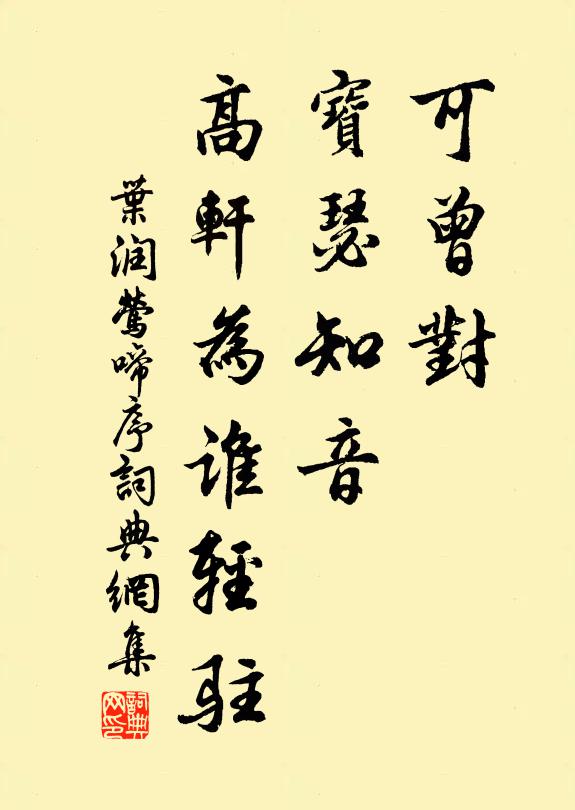 可曾對
寶瑟知音
高軒為谁輕駐
葉润鶯啼序詞典網集
詞典网印